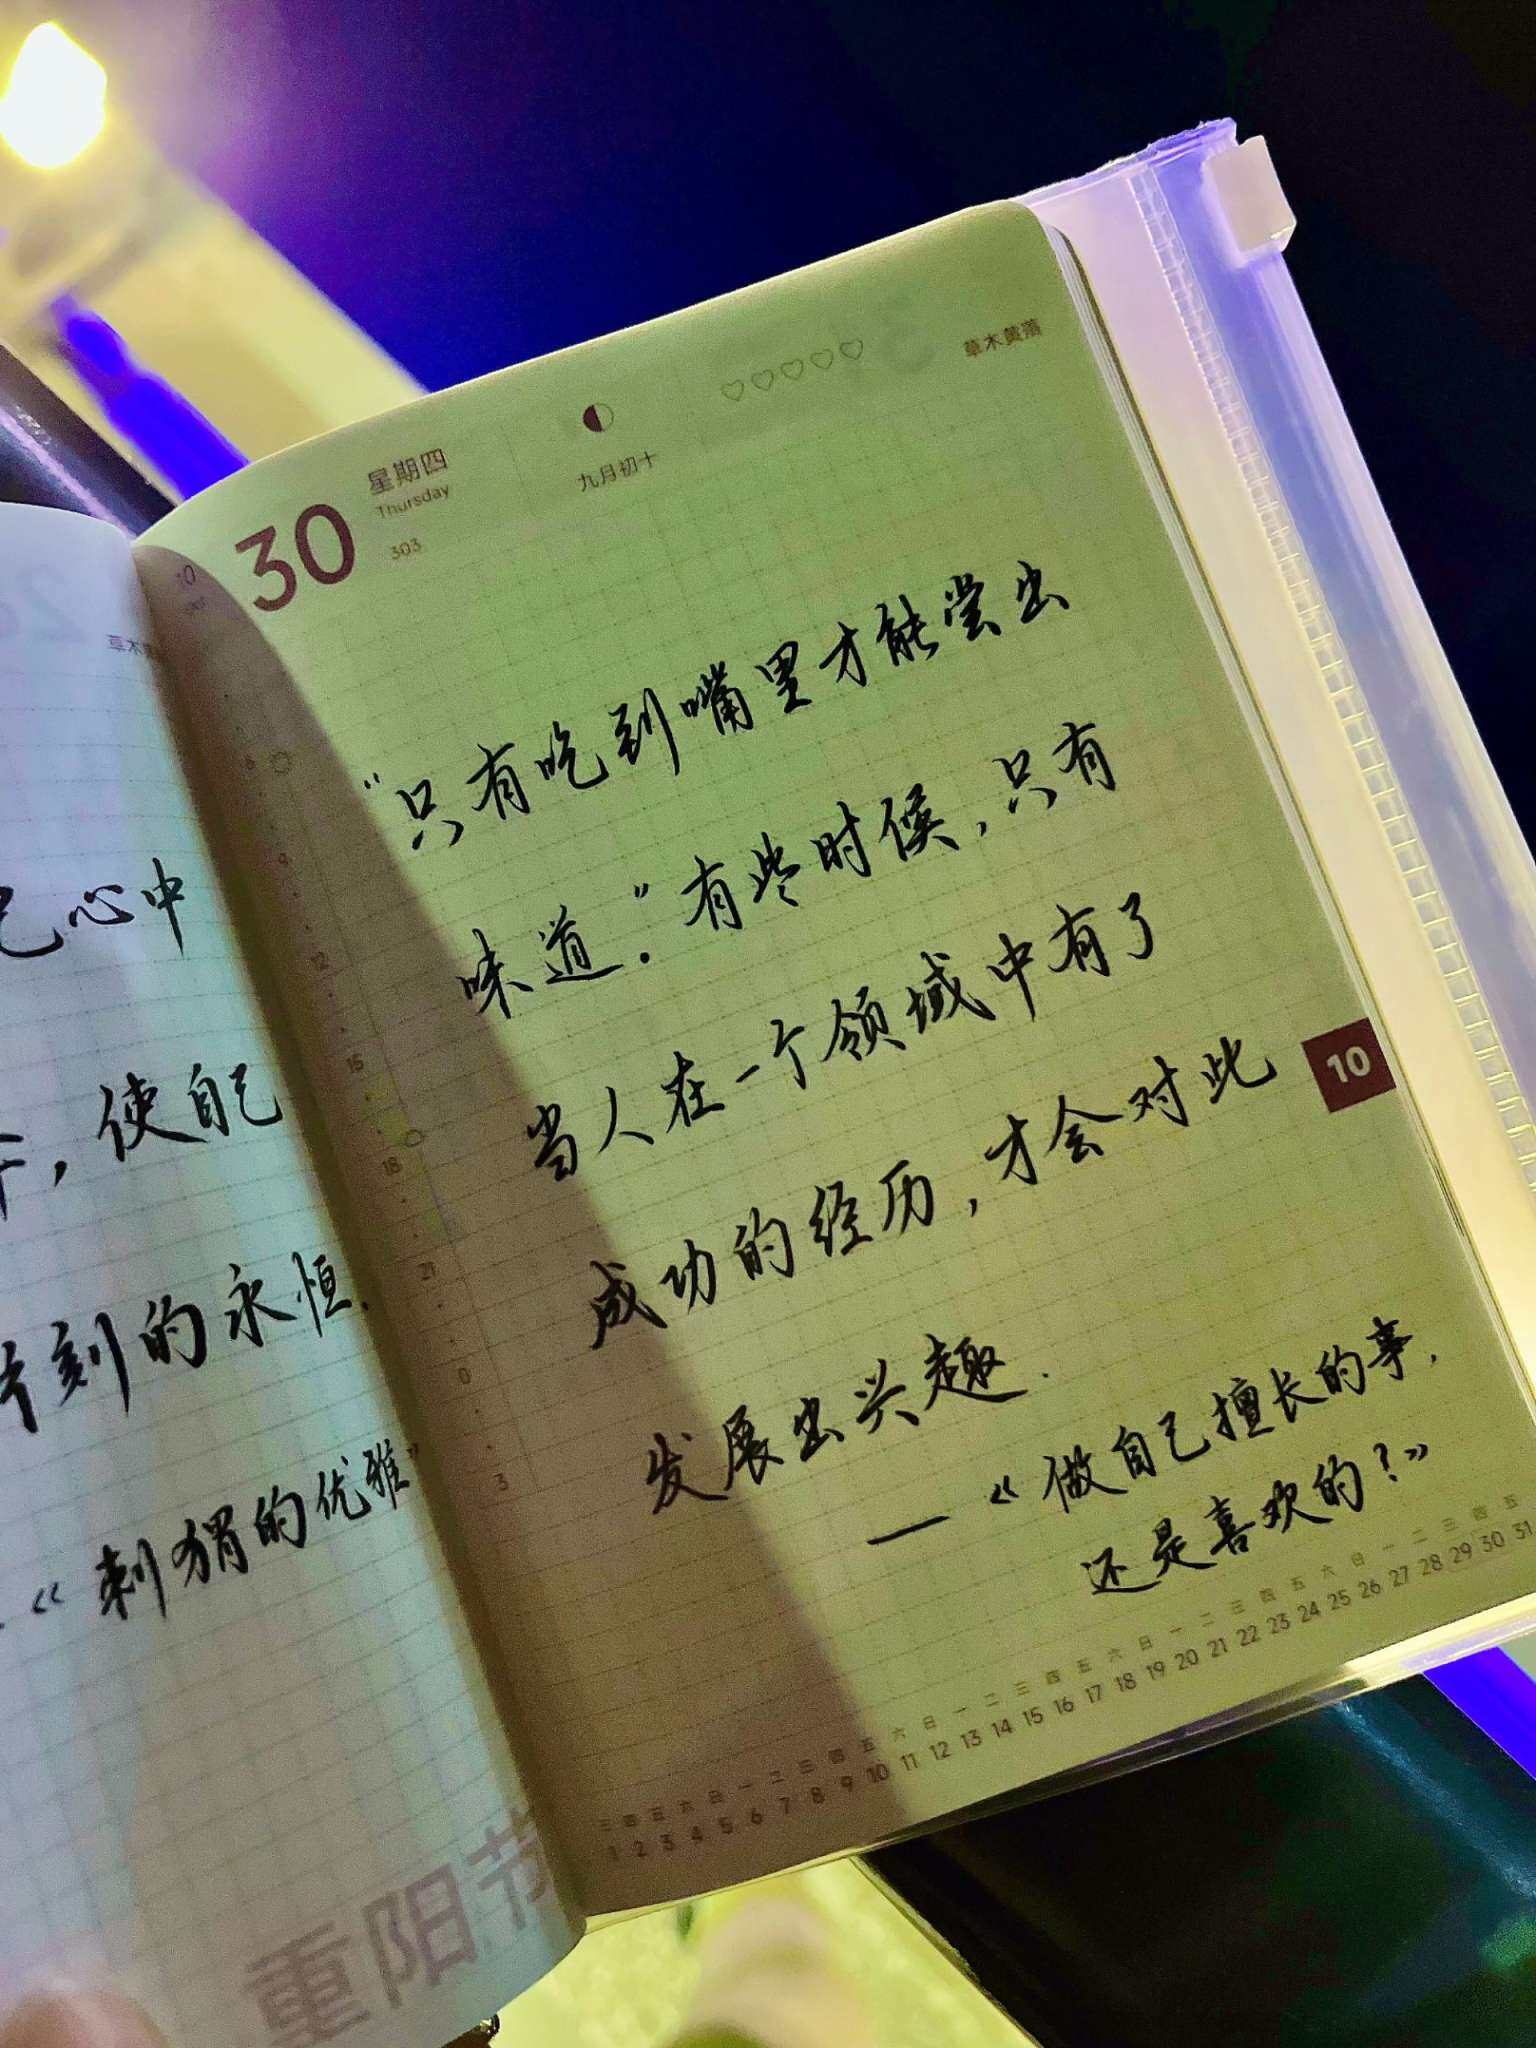 己心中
，使自己
片刻的永恒.
《刺猬的优雅》
重阳节
30
星期四
Thursday
303
九月初十
草木黄落
10
"只有吃到嘴里才能尝出
味道."有些时候，只有
当人在一个领域中有了
成功的经历，才会对此
发展出兴趣.
——《做自己擅长的事，
还是喜欢的？》
6
9
12
15
18
21
0
3
三 四 五 六 日 一 二 三 四 五 六 日 一 二 三 四 五 六 日 一 二 三 四 五 六 日 一 二 三 四 五
1 2 3 4 5 6 7 8 9 10 11 12 13 14 15 16 17 18 19 20 21 22 23 24 25 26 27 28 29 30 31